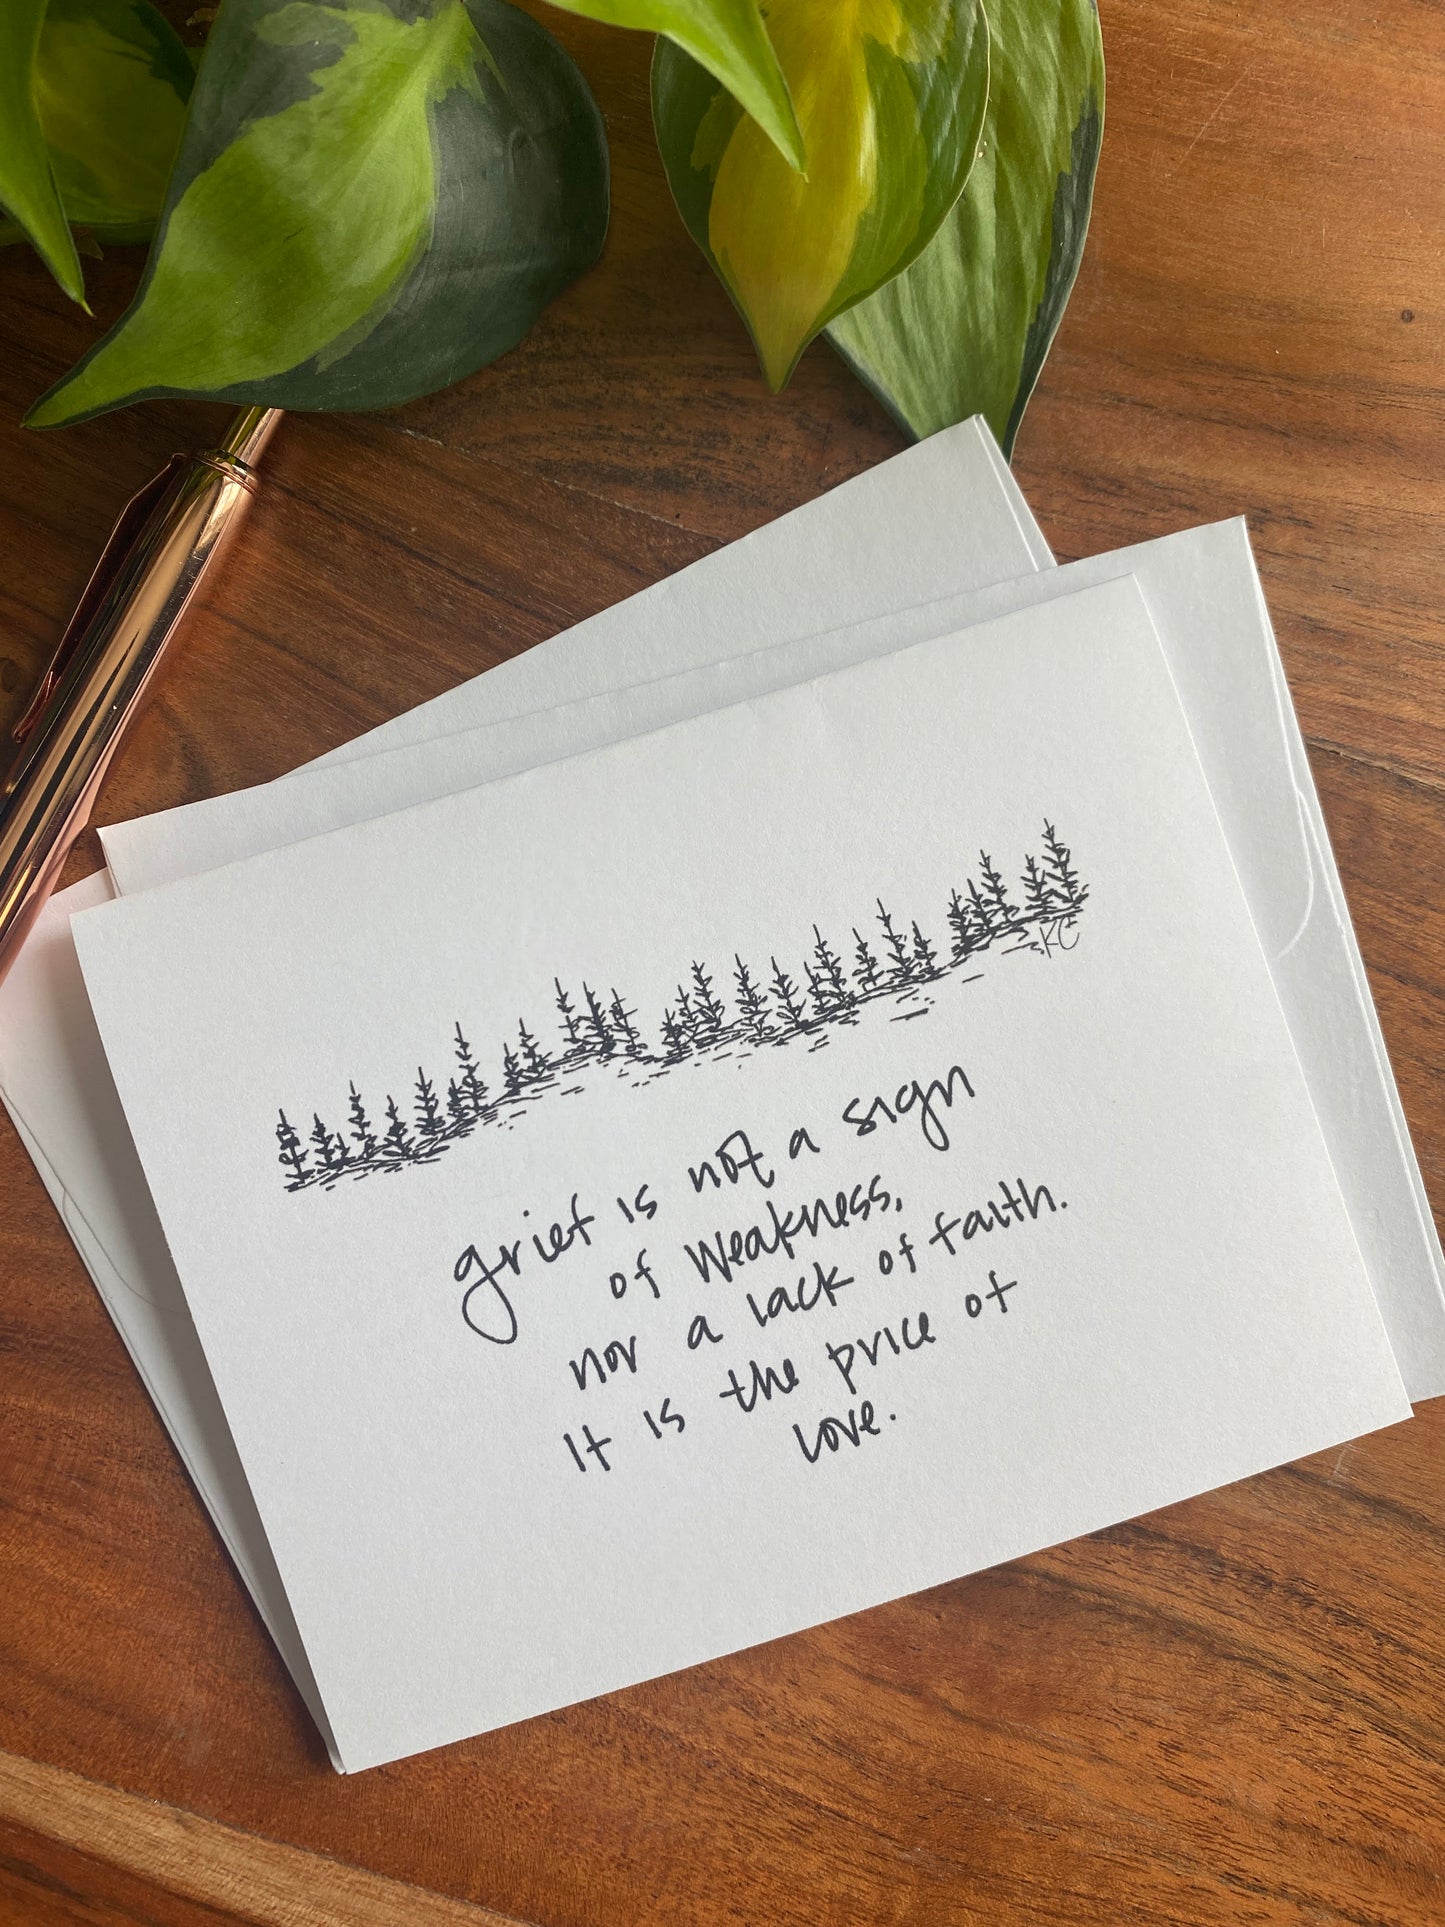 KC
grief is not a sign
of weakness,
nor a lack of faith.
It is the price of
love.